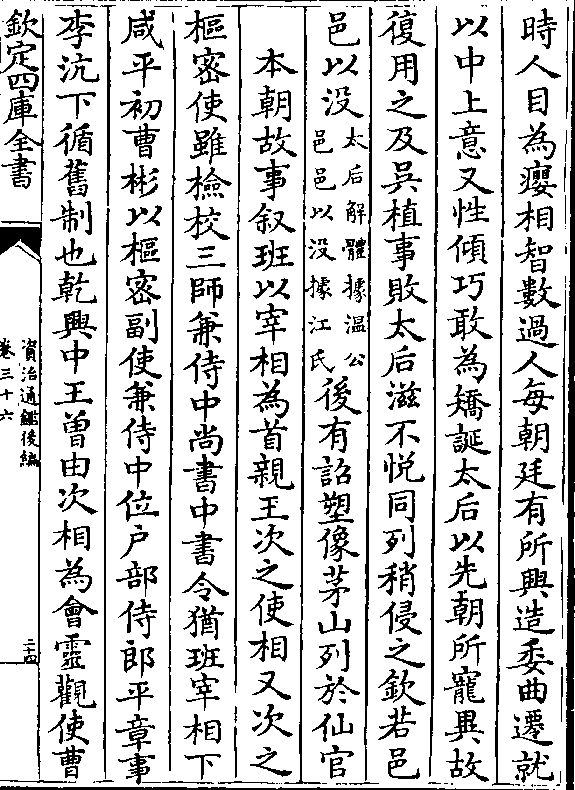 時人目為癭相智數過人每朝廷有所興造委曲遷就
以中上意又性傾巧敢為矯誕太后以先朝所寵異故
復用之及吳植事敗太后滋不悅同列稍侵之欽若邑
邑以没太后解體據温公邑邑以没據江氏後有詔塑像茅山列於仙官
本朝故事叙班以宰相為首親王次之使相又次之
樞密使雖檢校三師兼侍中尚書中書令猶班宰相下
咸平初曹彬以樞密副使兼侍中位户部侍郎平章事
李沆下循舊制也乾興中王曾由次相為會靈觀使曹
欽定四庫全書
資治通鑑後編
卷三十六
二十四